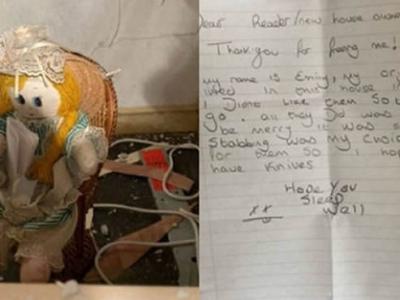 Dear Reader/new house owner
Thank you for freeing me!
my name is Emily, my ori
lived in this house i
I Didnt like them so th
go. all they Did was s
be merry it was s
Stabbing was my choic
for them so I hop
have knives
Hope You
Sleep
Well
xx